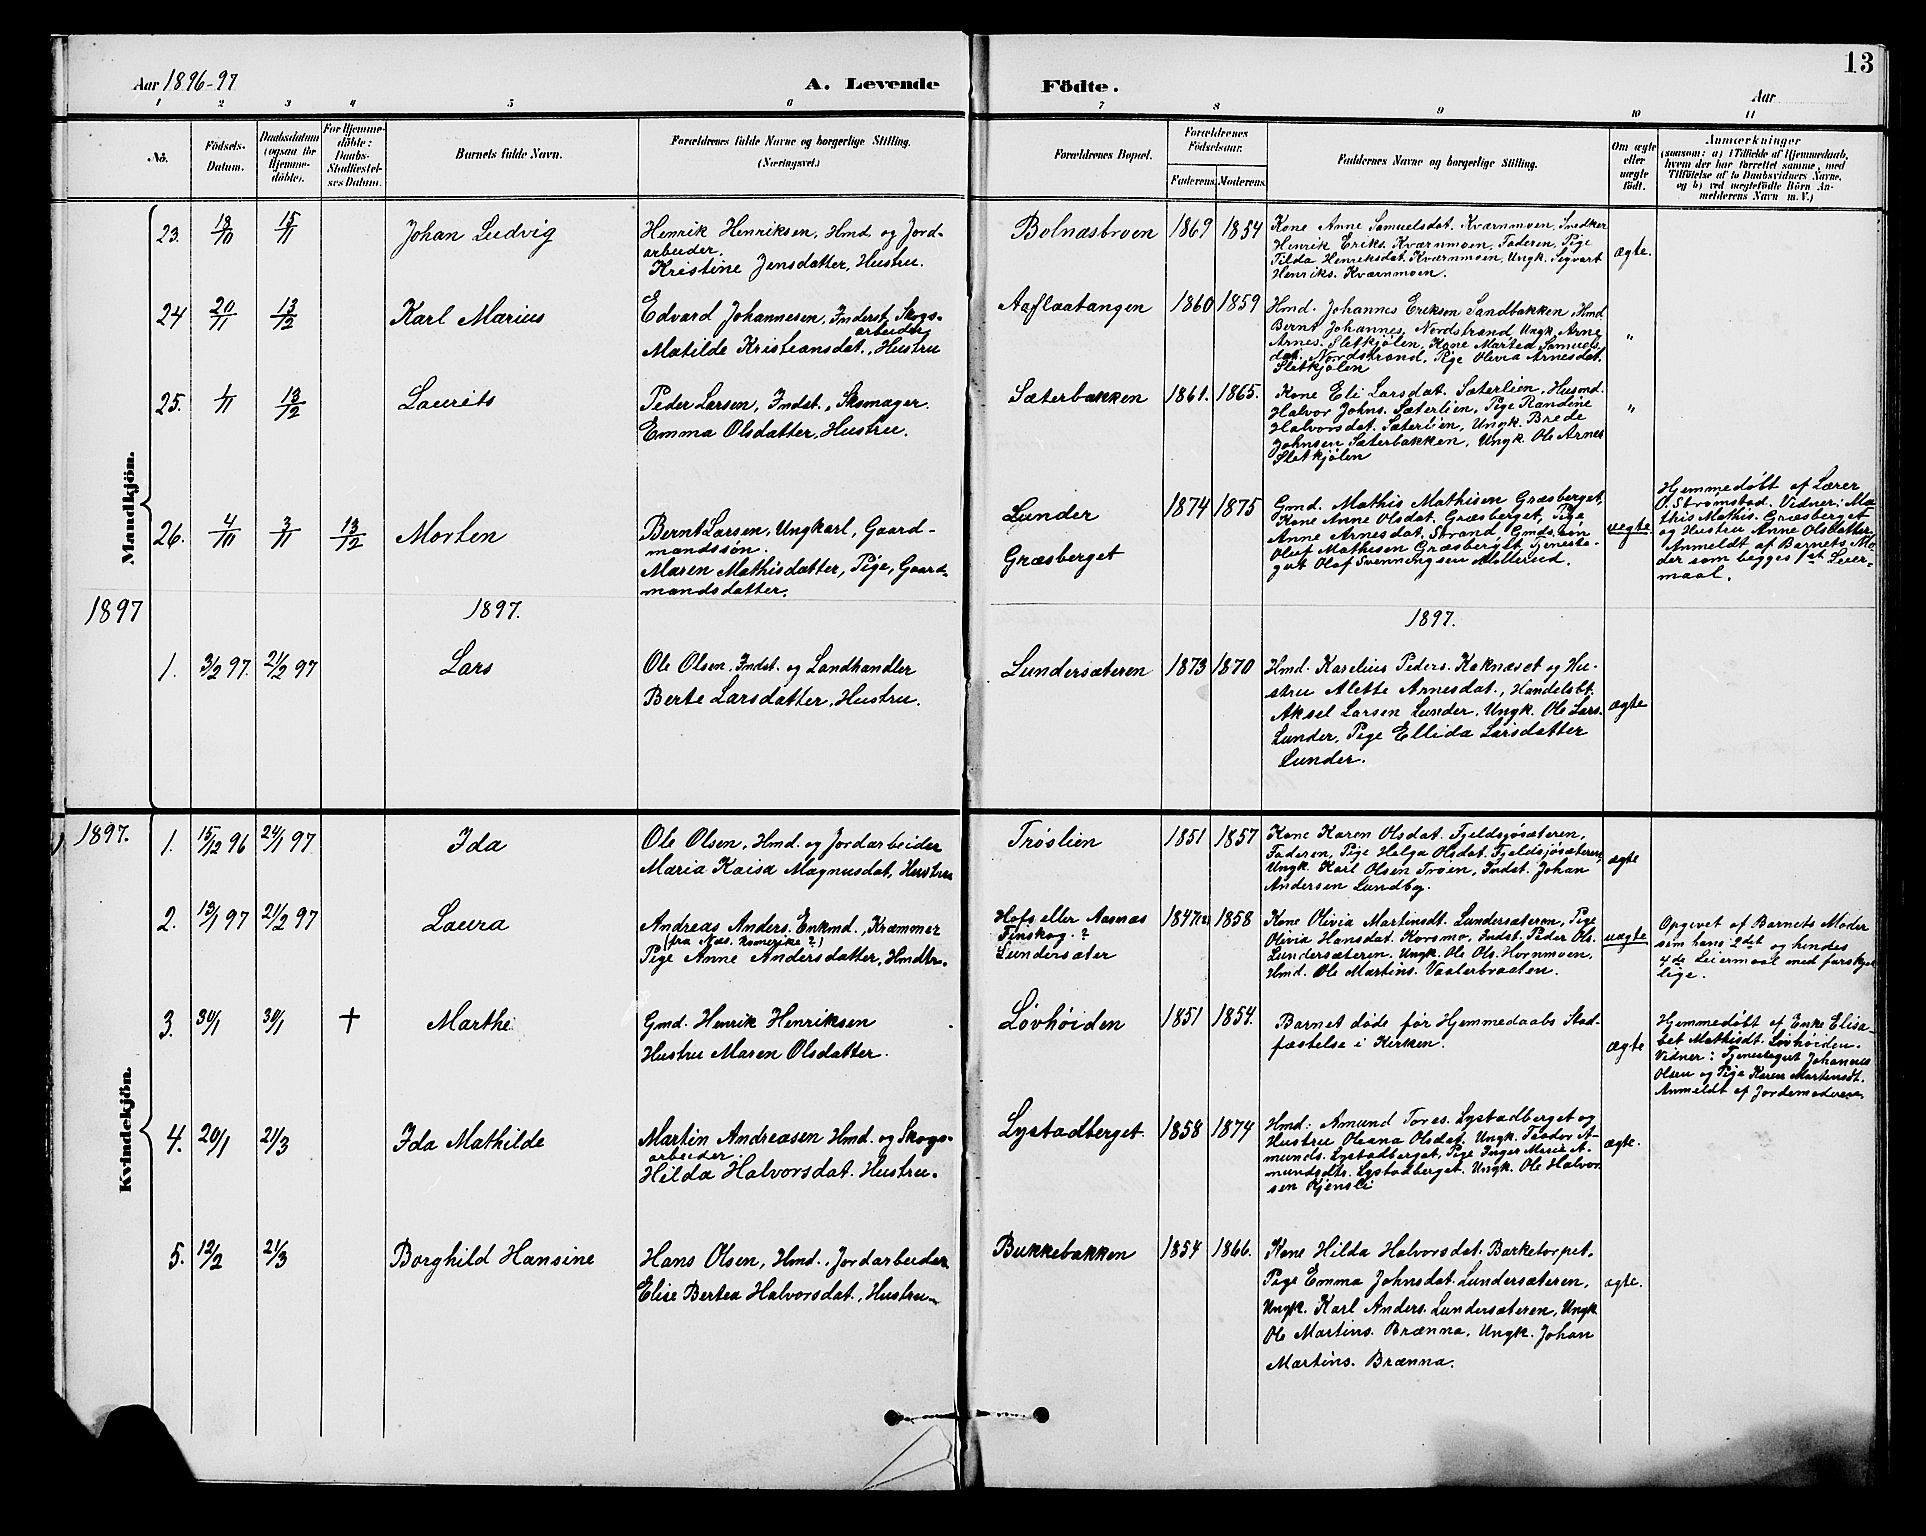 13
Aar 1896-97
A. Levende Födte.
Aar
1 2 3 4 5 6 7 8 9 10 11
No.
Födsels-
Datum.
Daabsdatum
(ogsaa for
Hjemme-
döbte).
For Hjemme-
döbte:
Daabs-
Stadfæstel-
ses Datum.
Barnets fulde Navn.
Forældrenes fulde Navne og borgerlige Stilling.
(Næringsvei.)
Forældrenes Bopæl.
Forældrenes
Födselsaar.
Faderens. Moderens.
Faddernes Navne og borgerlige Stilling.
Om ægte
eller
uægte
födt.
Anmærkninger
(saasom: a) i Tilfælde af Hjemmedaab,
hvem der har forrettet samme, med
Tilföielse af to Daabsvidners Navne,
og b) ved uægtefödte Börn An-
melderens Navn m. V.)
Mandkjön.
23. 18/10 15/11 Johan Ludvig
Henrik Henriksen, Hmd. og Jord-
arbeider.
Kristine Jensdatter, Hustru.
Bolnæsbroen 1869 1854
Kone Anne Samuelsdat. Kværnmoen, Snedker
Henrik Eriks. Kværnmoen, Faderen, Pige
Tilda Henriksdat. Kværnmoen, Ungk. Sigvart
Henriks. Kværnmoen.
ægte.
24 20/11 13/12 Karl Marius
Edvard Johannesen, Inderst, Skogs-
arbeider
Matilde Kristiansdat., Hustru
Aaflaatangen 1860 1859
Hmd. Johannes Eriksen Sandbakken, Hmd
Bernt Johannes. Nordstrand, Ungk. Arne
Arnes. Sletkjølen, Kone Martea Samuels
dat. Nordstrand, Pige Olivia Arnesdat.
Sletkjølen
"
25. 1/11 13/12 Laurits
Peder Larsen, Indst., Skomager.
Emma Olsdatter, Hustru.
Sæterbakken 1861. 1865.
Kone Eli Larsdat. Sæterlien, Husmd.
Halvor Johns. Sæterlien, Pige Randine
Halvorsdat. Sæterlien, Ungk. Brede
Johnsen Sæterbakken, Ungk Ole Arnes
Sletkjølen
"
26. 4/10 3/11 13/12 Morten
Bernt Larsen, Ungkarl, Gaard-
mandssøn.
Maren Mathisdatter, Pige, Gaard-
mandsdatter.
Lunder
Græsberget
1874 1875
Gmd. Mathis Mathisen Græsberget,
Kone Anne Olsdat. Græsberget, Pige
Anne Arnesdat. Strand, Gmds. søn
Oluf Mathisen Græsberget, Tjeneste-
gut Olaf Svenningsen Møllerud.
uægte
Hjemmedøbt af Lærer
O. Strømstad. Vidner: Ma-
this Mathis. Græsberget
og Hustru Anne Olsdatter
Anmeldt af Barnets Mo-
der som begges 1st Leier-
maal.
1897 1897. 1897.
1. 3/2 97. 21/2 97 Lars
Ole Olsen, Indst. og Landhandler
Berte Larsdatter, Hustru.
Lundersæteren 1873 1870
Hmd. Karelius Peders. Kaknæset og Hu-
stru Alette Arnesdat., Handelsbt.
Aksel Larsen Lunder, Ungk. Ole Lars.
Lunder, Pige Ellida Larsdatter
Lunder.
ægte
Kvindekjön.
1897. 1. 15/12 96 24/1 97 Ida
Ole Olsen, Hmd. og Jordarbeider
Maria Kaisa Magnusdat, Hustru
Trøslien 1851 1857
Kone Karen Olsdat. Fjeldsjøsæteren,
Faderen, Pige Helga Olsdat. Fjeldsjøsæteren,
Ungk. Karl Olsen Troen, Indst. Johan
Andersen Lundby.
ægte
2. 13/1 97 21/2 97 Laura
Andreas Anders. Enkmd., Kræmmer
(fra Næs. Romerike?)
Pige Anne Andersdatter, Hmdtr.
Hofs eller Aasnæs
Finskog.?
Lundersæter
1847 1858
Kone Olivia Martinsdt. Lundersæteren, Pige
Olivia Hansdat. Korsmo, Indst. Peder Ols.
Lundersæteren. Ungk. Ole Ols. Hornmoen,
Hmd. Ole Martins. Vaalerbraaten.
uægte
Opgivet af Barnets Moder
som hans 2det og hendes
4de Leiermaal med forskjel
lige.
3. 30/1 30/1 † Marthe
Gmd. Henrik Henriksen
Hustru Maren Olsdatter.
Løvhøiden 1851 1854.
Barnet døde før Hjemmedaabs Stad-
fæstelse i Kirken.
ægte
Hjemmedøbt af Enke Elisa-
bet Mathisdt. Løvhøiden.
Vidner: Tjenestegut Johannes
Olsen og Pige Karen Martinsdt.
Anmeldt af Jordemoderen
4. 20/1 21/3 Ida Mathilde
Martin Andreasen Hmd. og Skogs-
arbeider.
Hilda Halvorsdat. Hustru.
Lystadberget. 1858 1874
Hmd. Amund Tores. Lystadberget og
Hustru Oleana Olsdat. Ungk. Teodor A-
munds. Lystadberget, Pige Inger Marie A-
mundsdtr. Lystadberget. Ungk. Ole Halvor
sen Kjensli
ægte.
5. 12/2 21/3 Borghild Hansine
Hans Olsen, Hmd., Jordarbeider
Elise Bertea Halvorsdat., Hustru.
Bukkebakken 1854 1866.
Kone Hilda Halvorsdat. Barketorpet.
Pige Emma Johnsdat. Lundersæteren,
Ungk. Karl Anders. Lundersæteren, Ungk
Ole Martins. Brænna, Ungk. Johan
Martins. Brænna.
ægte.